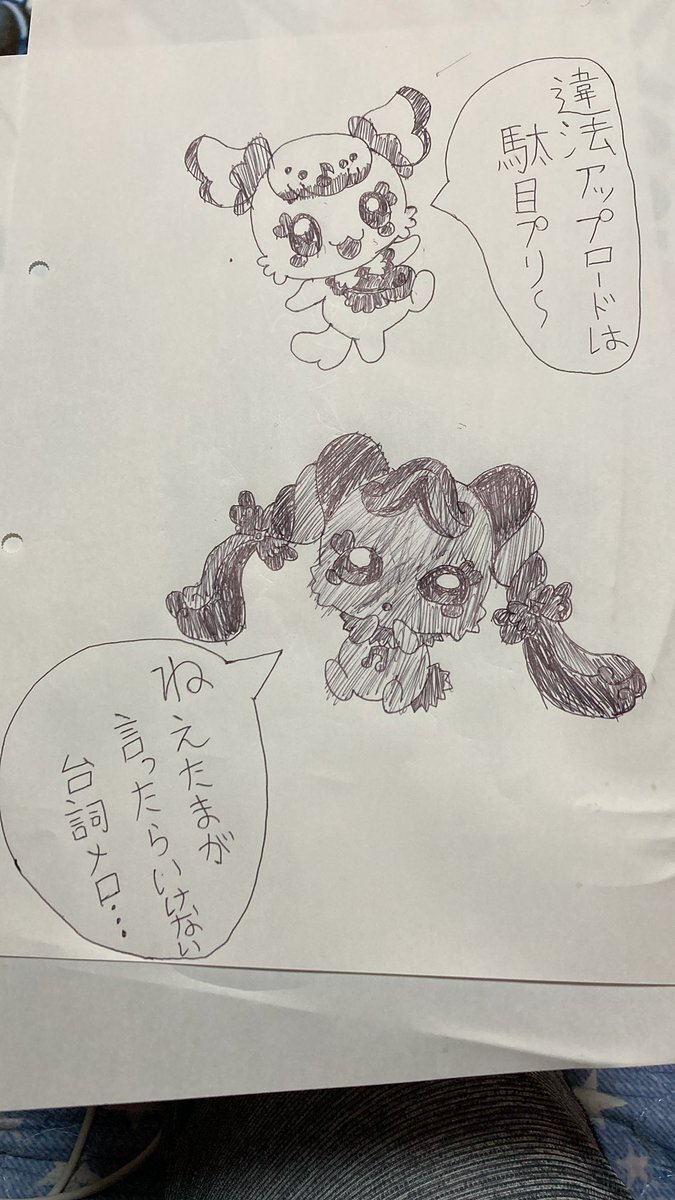 違法アップロードは
駄目プリ〜
ねえたまが
言ったらいけない
台詞メロ…